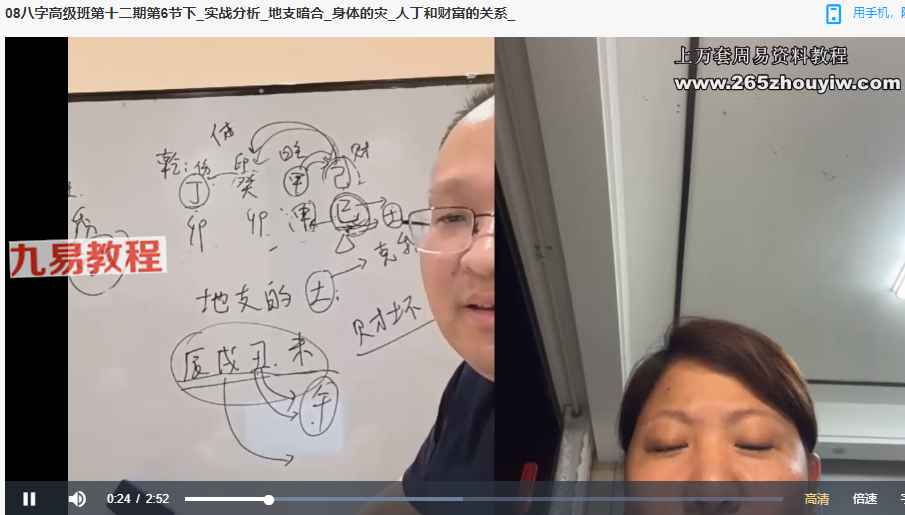 08八字高级班第十二期第6节下_实战分析_地支暗合_身体的灾_人丁和财富的关系_
用手机，
上万套周易资料教程
www.265zhouyiw.com
乾：伤 印 日主 财
丁 癸 甲 己
卯 卯 巳 土
九易教程
地支的 土：
财坏
辰戌丑.未
午
0:24 / 2:52
高清
倍速